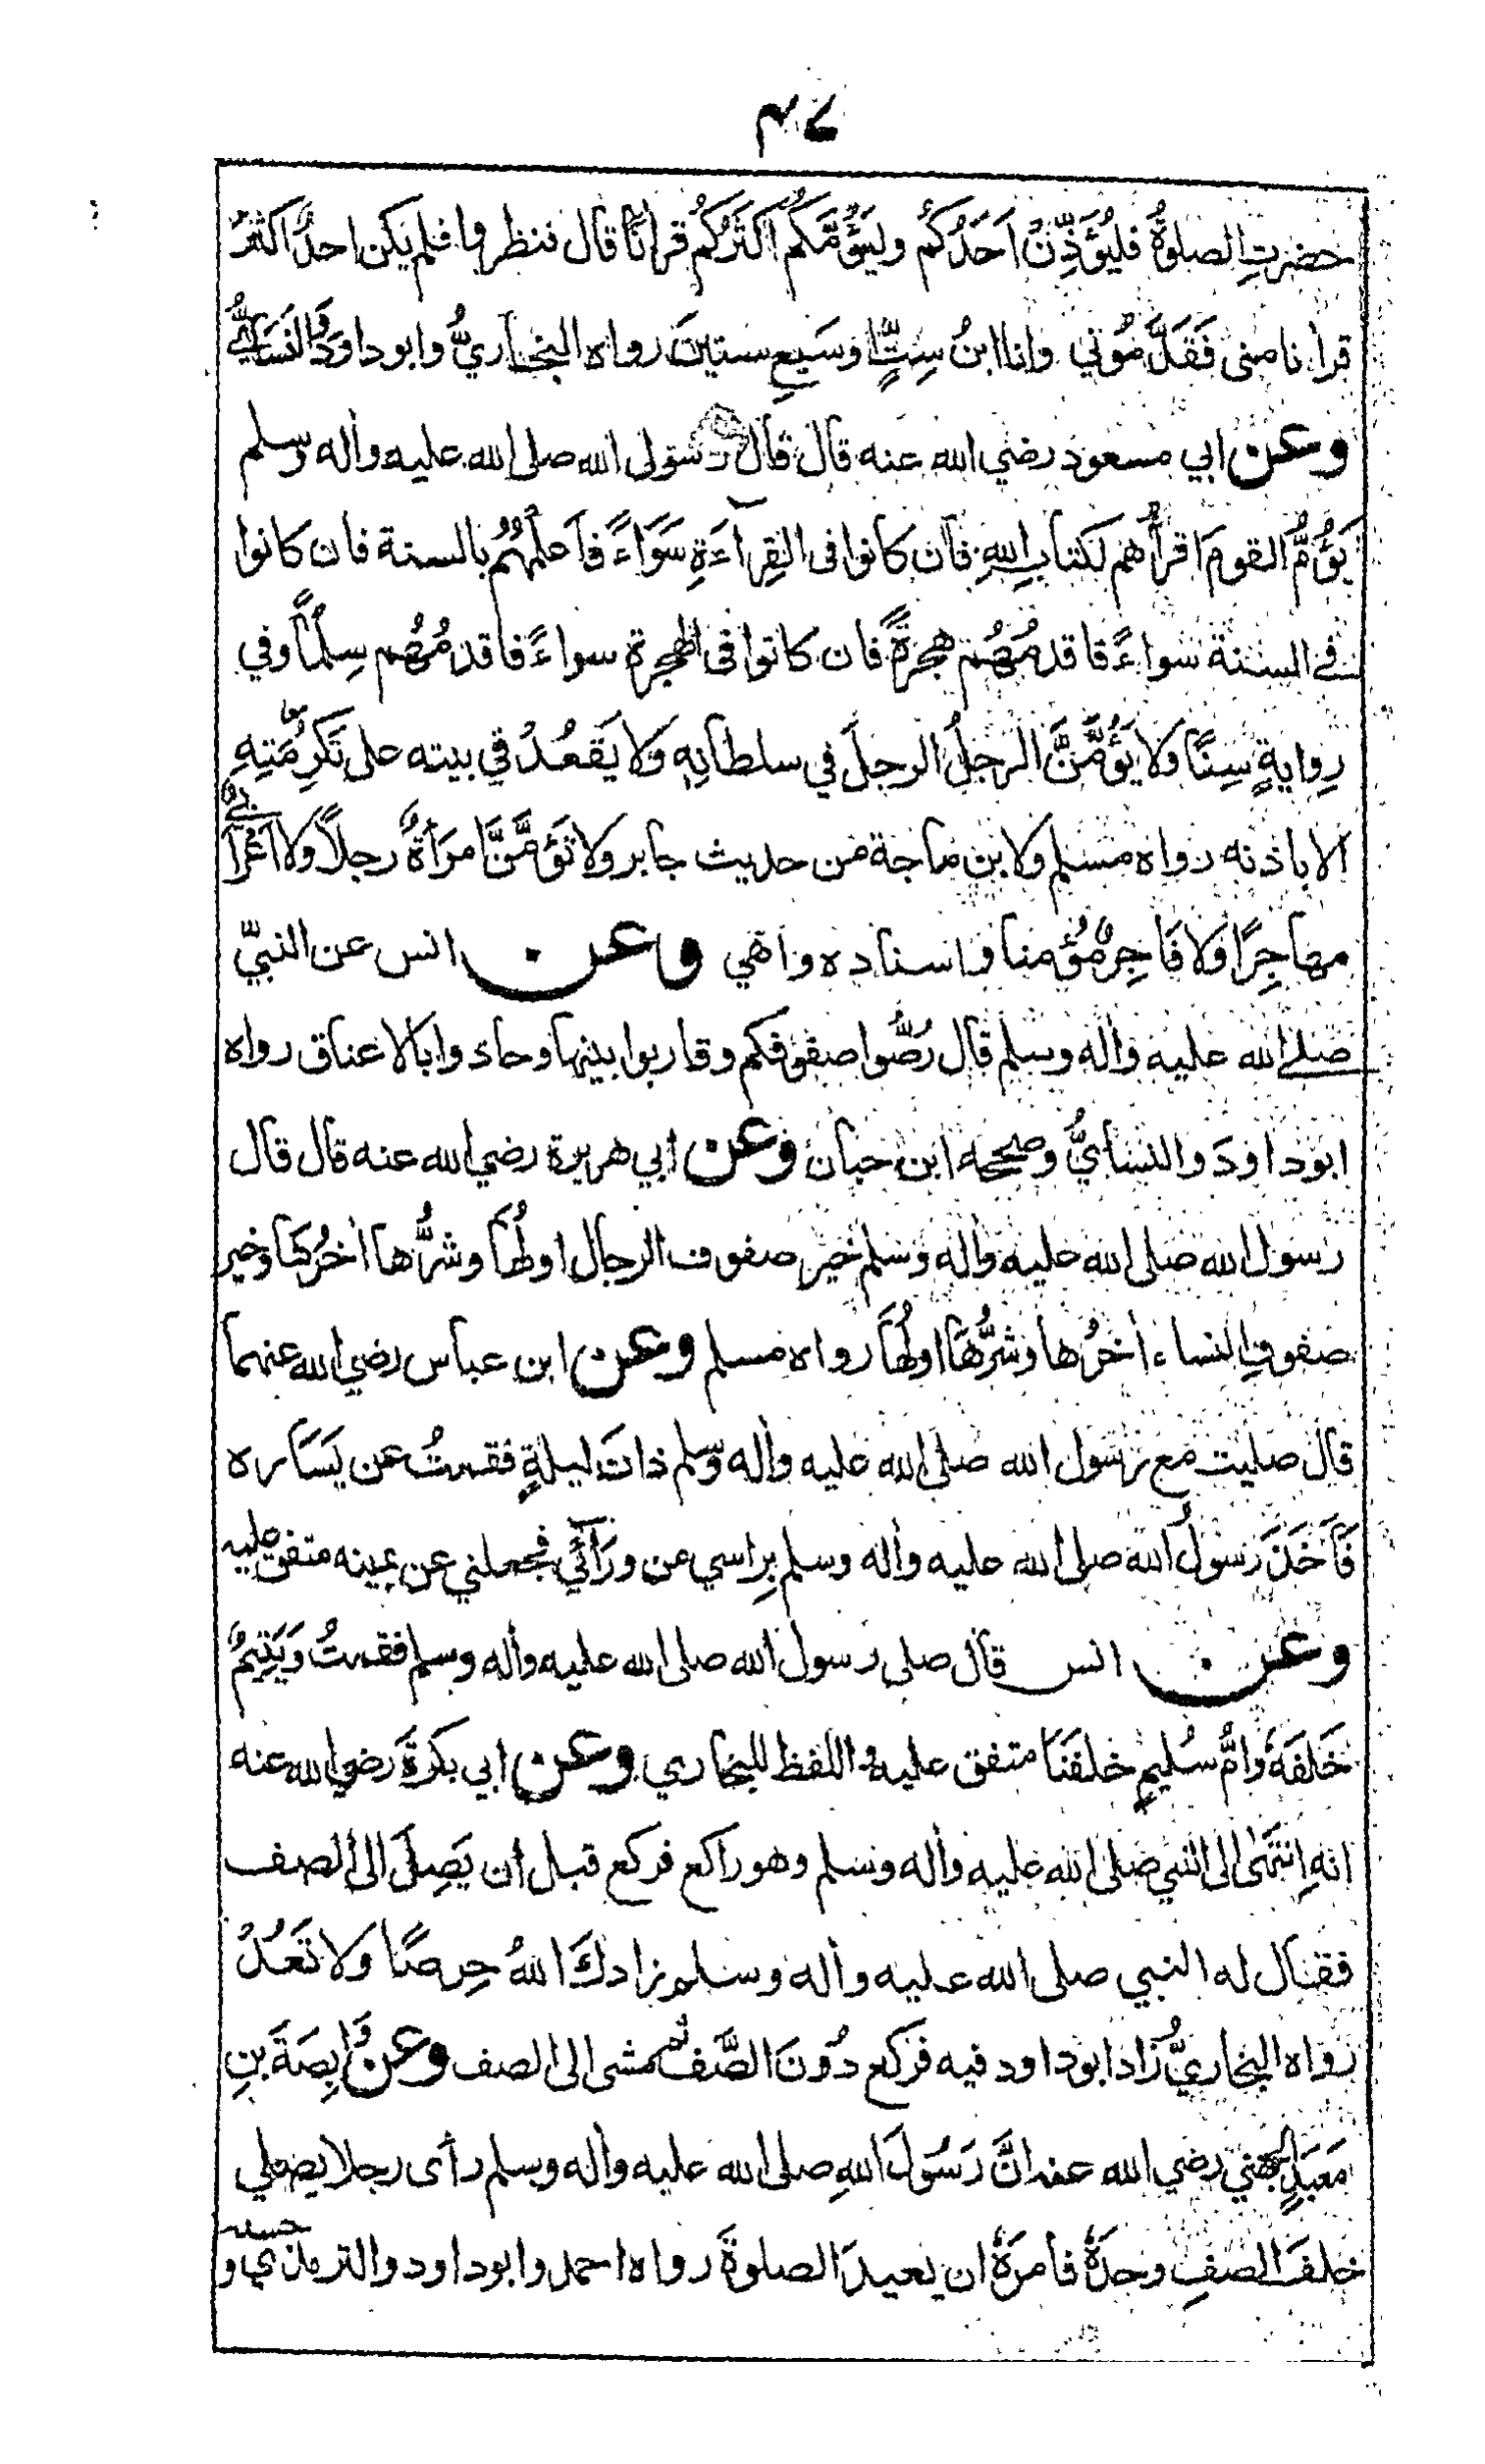 ٤٦
حضرتِ الصلوةُ فليُؤذِّنْ اَحَدُكُمْ وليَؤُمَّكُمْ اكثَرُكُمْ قرانًا قال فنظروا فلم يكن احدٌ اكثرَ
قرانا منى فَقَدَّمُوني وانا ابنُ سِتٍّ او سَبعِ سنينَ رواه البخاريُّ وابوداودَ والنَسَائيُّ
وعن ابي مسعود رضي الله عنه قال قال رسول الله صلى الله عليه واٰله وسلم
يَؤُمُّ القومَ اقرأُهم لكتابِ اللهِ فان كانوا فى القِرآءَةِ سَوَاءً فاَعلَمُهُم بالسنة فان كانوا
فے السنة سواءً فاقدمُهُم هجرةً فان كانوا فى الهجرة سواءً فاقدمُهُم سِلمًا وفي
رِوايةٍ سِنًّا ولا يَؤُمَّنَّ الرجلُ الرجلَ في سلطانِهِ ولا يَقعُدْ في بيته على تَكرِمَتِهِ
الا باذنه رواه مسلم ولابن ماجة من حديث جابر ولا تَؤُمَّنَّ امرَأةٌ رجلاً ولا اَعرابيٌّ
مهاجِرًا ولا فَاجِرٌ مُؤمنا واسناده واهي وعن انس عن النبيّ
صلے الله عليه واٰله وسلم قال رُصُّوا صفوفكم وقاربوا بينها وحاذوا بالاعناق رواه
ابوداودَ والنسايُّ وصححه ابن حبان وعن ابي هريرة رضي الله عنه قال قال
رسول الله صلى الله عليه واٰله وسلم خير صفوف الرجال اولُها وشرُّها اٰخرُها وخير
صفوفِ النساء اٰخرُها وشرُّهَا اولُهَا رواه مسلم وعن ابن عباس رضي الله عنهما
قال صليت مع رسول الله صلى الله عليه واٰله وسلم ذاتَ ليلةٍ فقمتُ عن يَسَاره
فَاَخَذَ رسولُ الله صلى الله عليه واٰله وسلم بِراسي من ورَآئي فجعلني عن يمينه متفق عليه
وعن انس قال صلى رسول الله صلى الله عليه واٰله وسلم فقمتُ ويَتِيمٌ
خَلفَهٗ وامُّ سُليمٍ خلفَنَا متفق عليه واللفظ للبخاري وعن ابي بكرةَ رضي الله عنه
انه اِنتَهَى الى النبي صلى الله عليه واٰله وسلم وهو راكع فركع قبل ان يَصِلَ الى الصف
فقال له النبي صلى الله عليه واٰله وسلم زادكَ اللهُ حِرصًا ولا تَعُدْ
رواه البخاريُّ زاد ابوداود فيه فركع دُونَ الصَّف ثم مشى الى الصف وعن وَابِصَةَ بنِ
مَعبَدٍ الجهني رضي الله عنه انَّ رَسُولَ اللهِ صلى الله عليه واٰله وسلم رأى رجلا يصلي
خلفَ الصفِ وحدَهٗ فأمرَهٗ ان يعيدَ الصلوةَ رواه احمد وابوداود والترمذي و حسنه